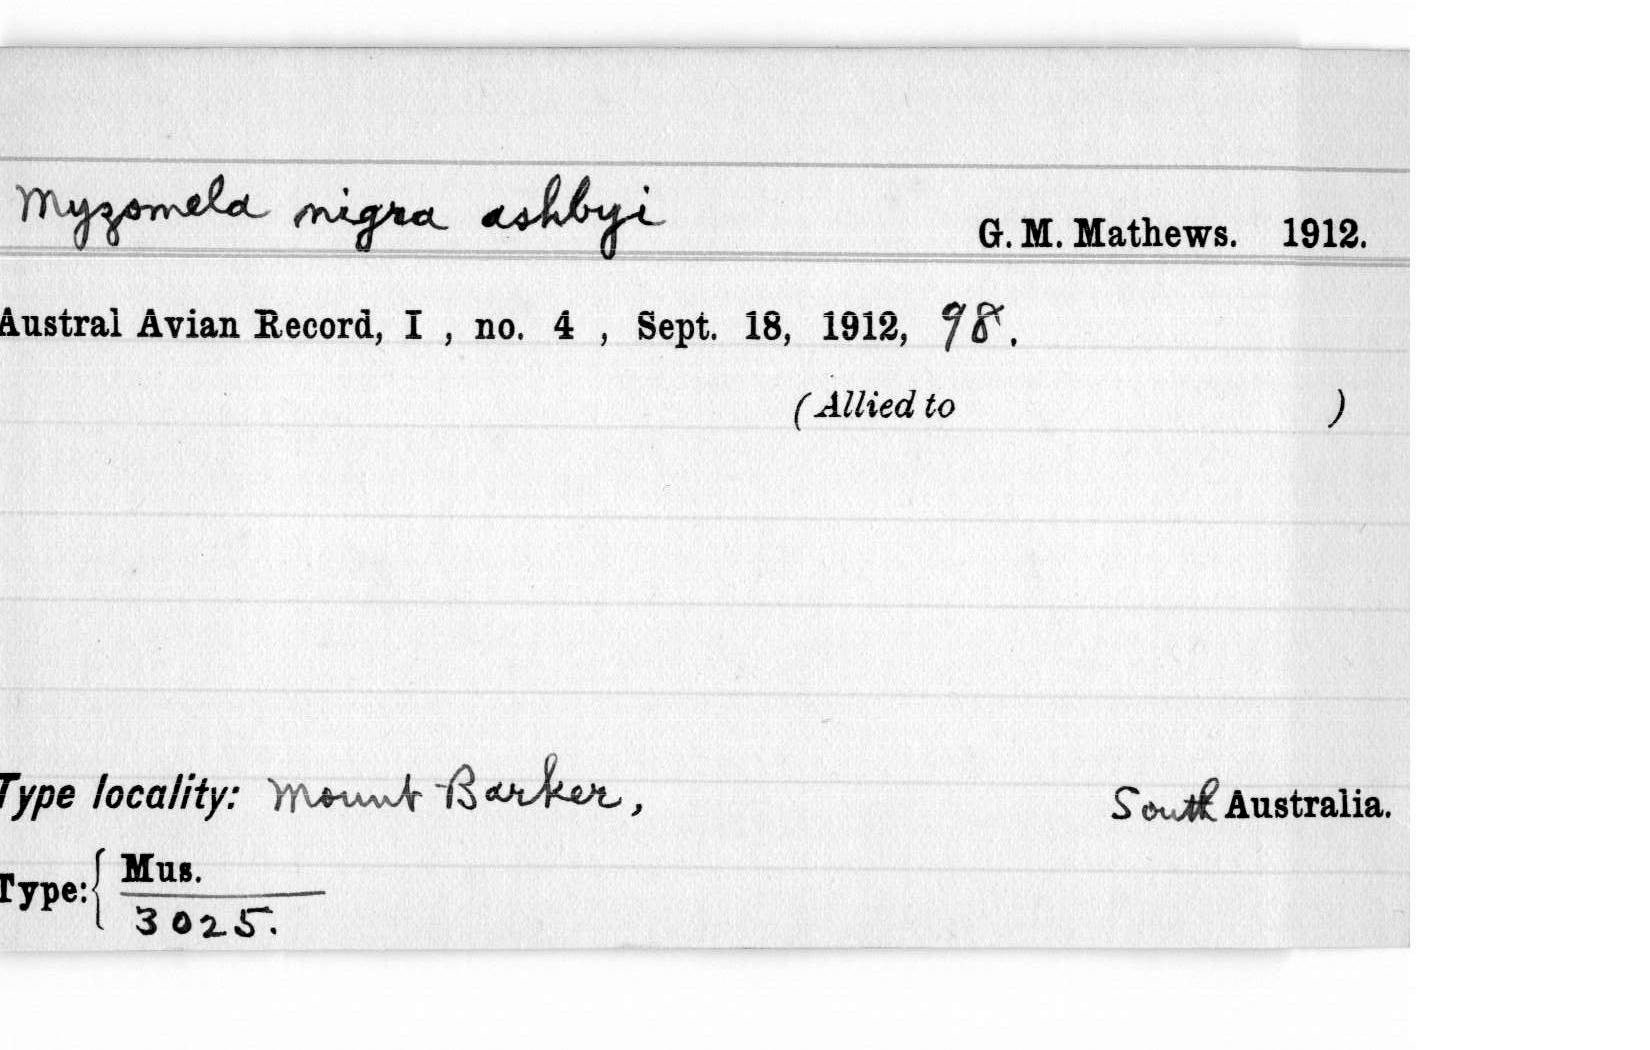 Myzomela nigra ashbyi G. M. Mathews. 1912.
Austral Avian Record, I , no. 4 , Sept. 18, 1912, 98.
(Allied to )
Type locality: Mount Barker, South Australia.
Type: { Mus.
3025.